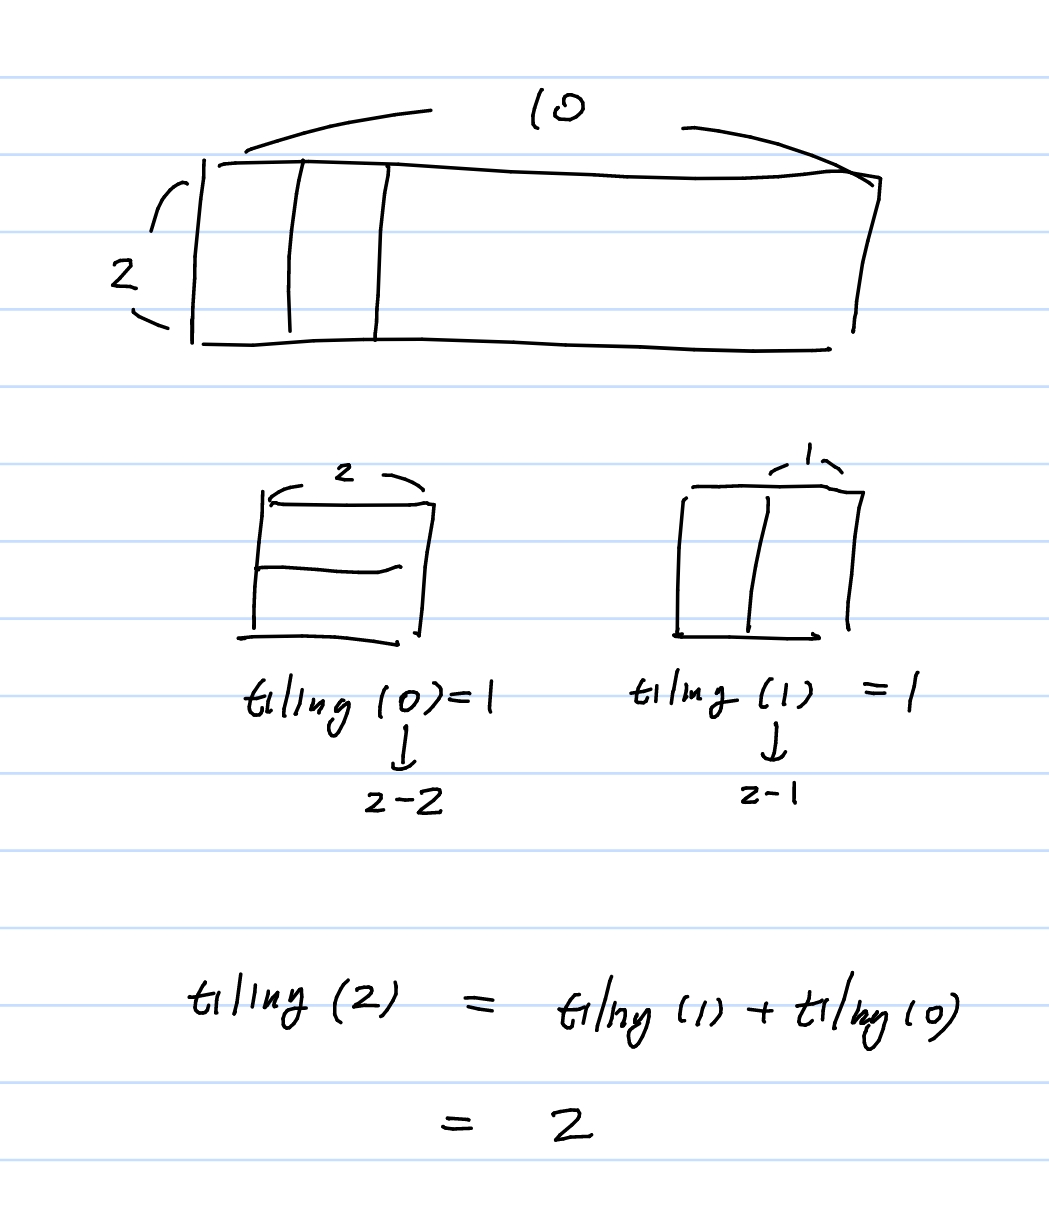 10
2
2 1
tiling (0)=1 tiling (1) =1
↓ ↓
2-2 2-1
tiling (2) = tiling (1) + tiling (0)
= 2